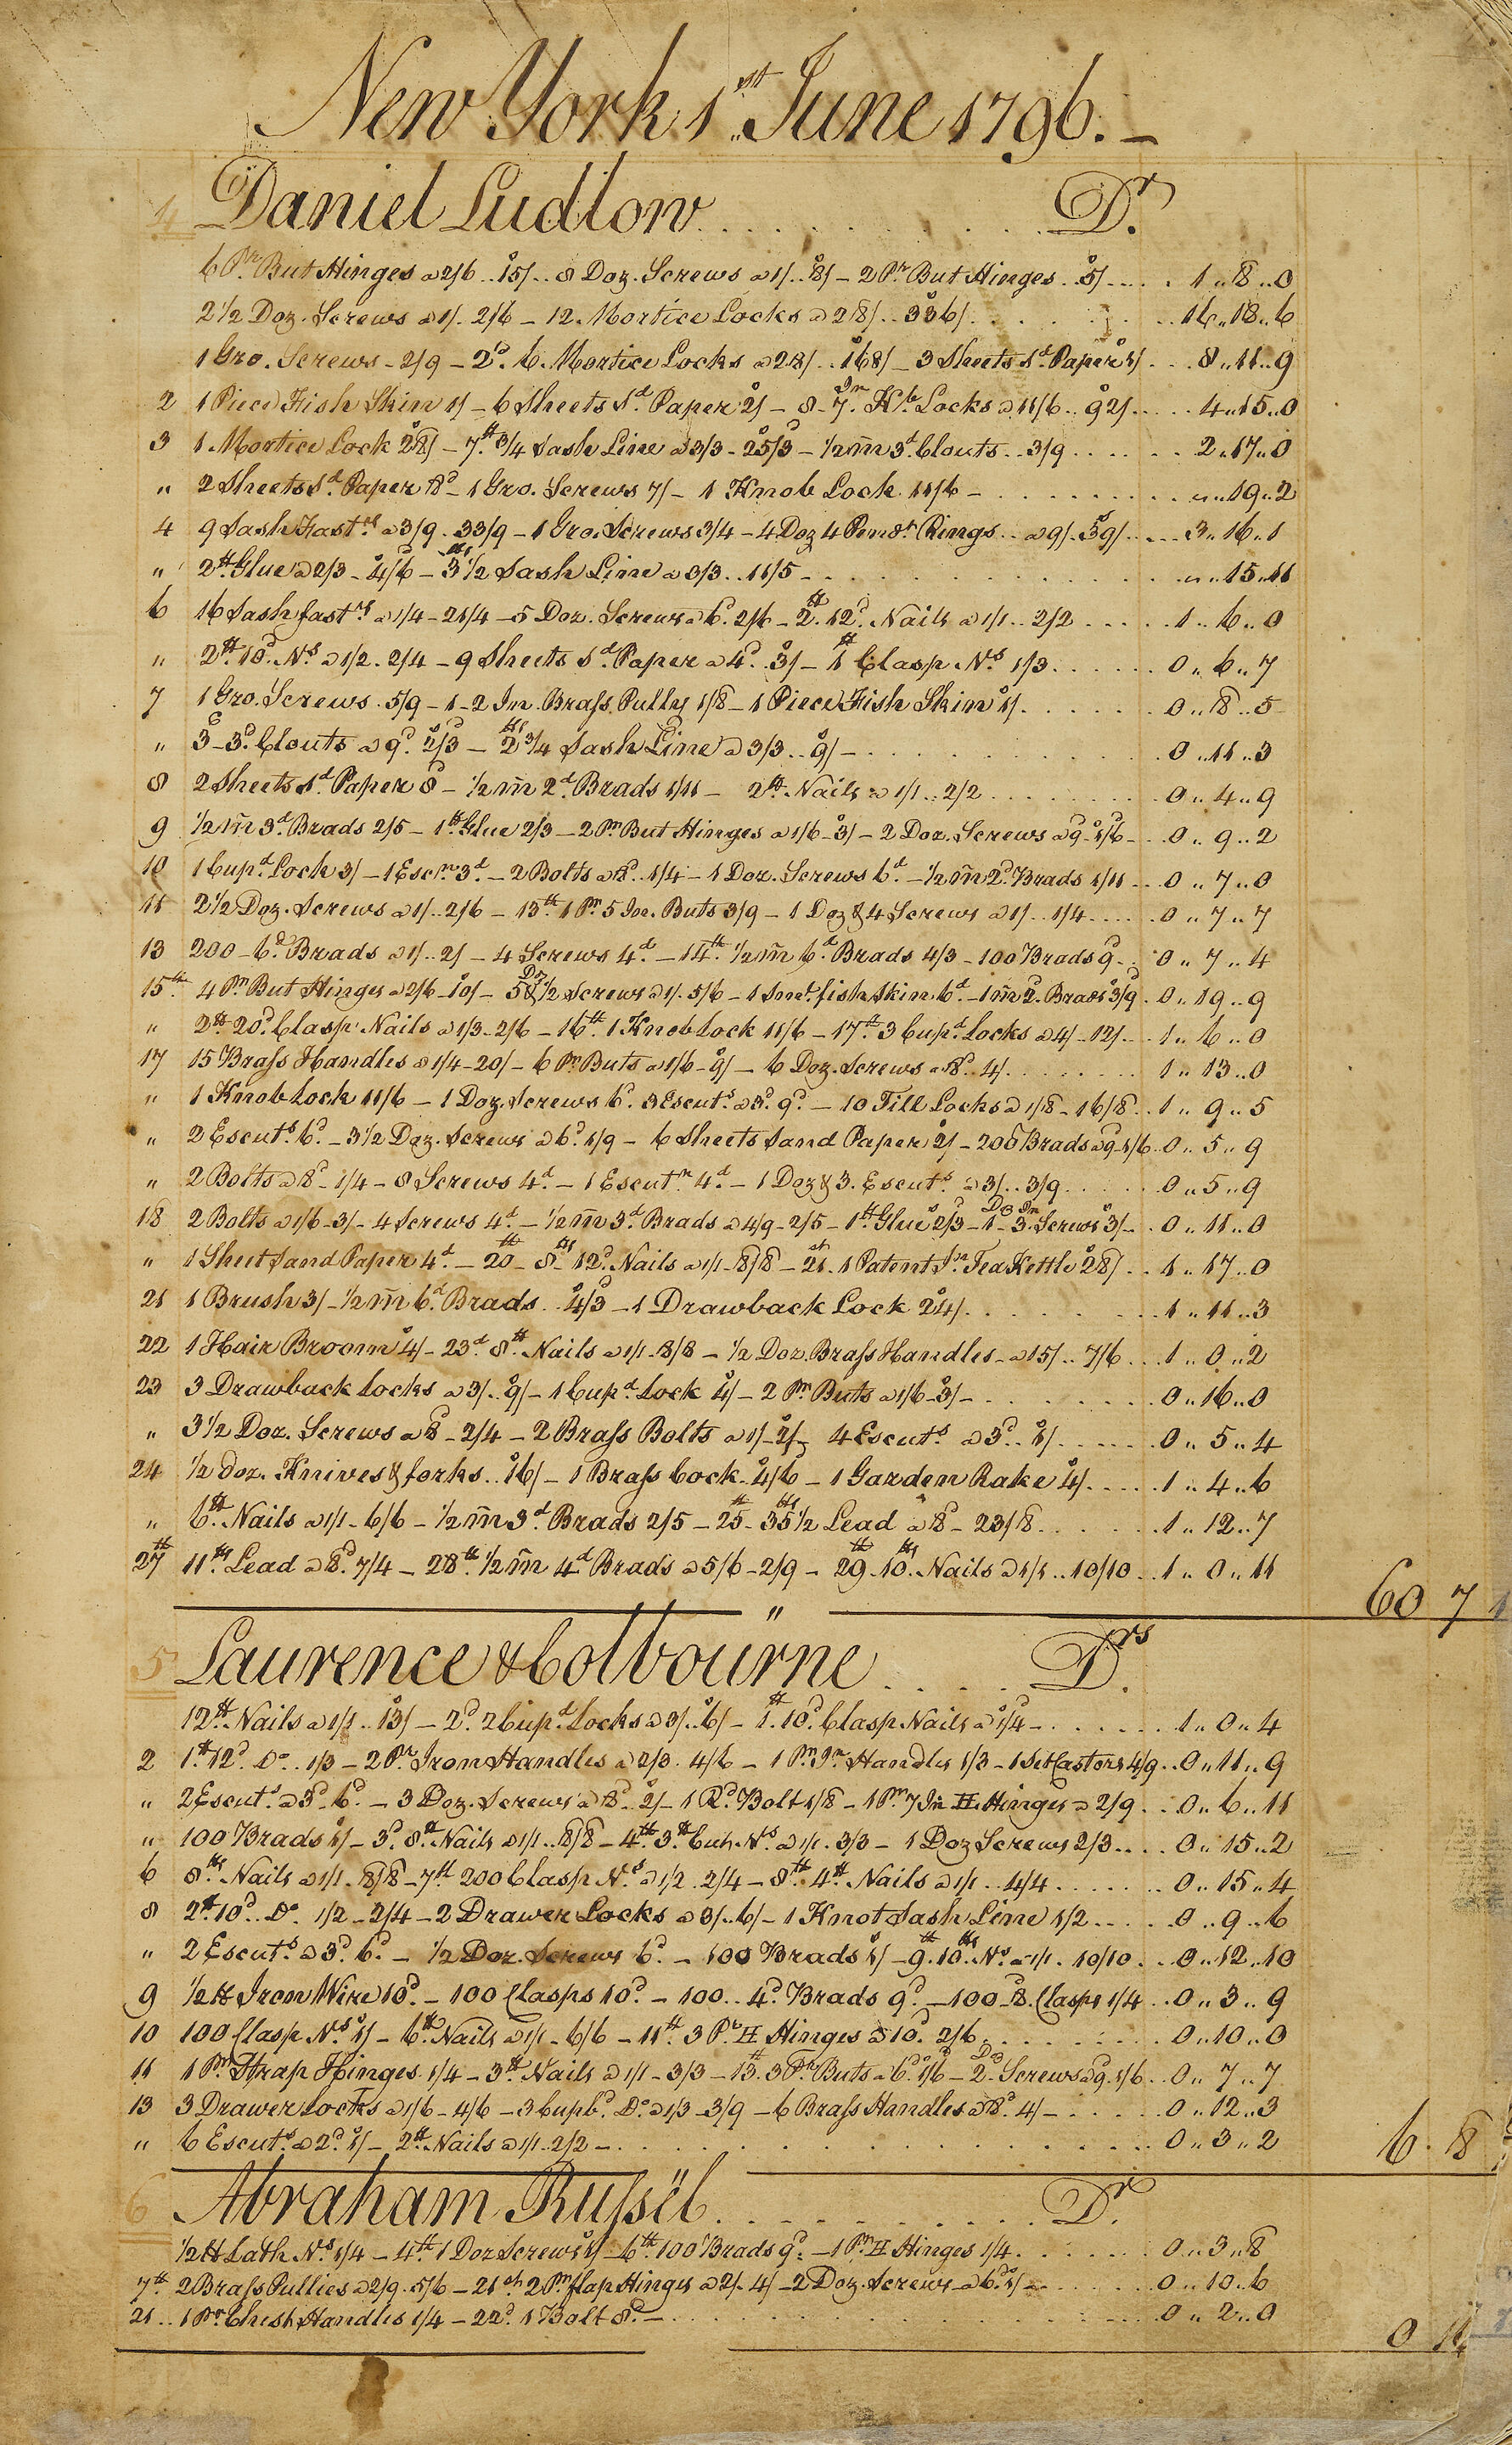 New York 1st June 1796. –
4 Daniel Ludlow . . . . Dr.
6 Pr. But Hinges a 2/6 .. 15/ .. 8 Doz. Screws a 1/ .. 8/ – 2 Pr. But Hinges .. 5/ .... 1 .. 8 .. 0
2 1/2 Doz. Screws a 1/. 2/6 – 12. Mortice Locks a 28/ .. 336/ .... 16 .. 18 .. 6
1 Gro. Screws – 2/9 – 2d. 6. Mortice Locks a 28/ .. 168/ – 3 Sheets Sd. Paper 1/ ... 8 .. 11 .. 9
2 1 Piece Fish Skin 1/ – 6 Sheets Sd. Paper 2/ – 8 – 7 In. Kb. Locks a 11/6 .. 92/ .... 4 .. 15 .. 0
3 1 Mortice Lock 28/ – 7 lb 3/4 Sash Line a 3/3 – 25/3 – 1/2 m 3d. Clouts .. 3/9 ..... 2 .. 17 .. 0
" 2 Sheets Sd. Paper 8d – 1 Gro. Screws 7/ – 1 Knob Lock 11/6 – ..... " .. 19 .. 2
4 9 Sash Fastrs a 3/9 . 33/9 – 1 Gro. Screws 3/4 – 4 Doz 4 Rings .. a 9/ . 39/ .... 3 .. 16 .. 1
" 2 lb Glue a 2/3 – 4/6 – 3 1/2 lbs Sash Line a 3/3 .. 11/5 – ..... " .. 15 .. 11
6 16 Sash fastrs a 1/4 – 21/4 – 5 Doz. Screws a 6d. 2/6 – 2 lb. 12d. Nails a 1/1 .. 2/2 ..... 1 .. 6 .. 0
" 2 lb 10d. Ns. a 1/2 . 2/4 – 9 Sheets Sd. Paper a 4d .. 3/ – 1 lb Clasp Ns. 1/3 ...... 0 .. 6 .. 7
7 1 Gro. Screws . 5/9 – 1 – 2 In. Brass Pully 1/8 – 1 Piece Fish Skin 1/ ...... 0 .. 8 .. 5
" 3 C – 3d. Clouts a 9d. 2/3 – 2 3/4 lbs Sash Line a 3/3 .. 9/ – ..... 0 .. 11 .. 3
8 2 Sheets Sd. Paper 8d – 1/2 m 2d. Brads 1/11 – 2 lb. Nails a 1/1 .. 2/2 ....... 0 .. 4 .. 9
9 1/2 m 3d. Brads 2/5 – 1 lb Glue 2/3 – 2 Pr. But Hinges a 1/6 – 3/ – 2 Doz. Screws a 9d – 1/6 – .. 0 .. 9 .. 2
10 1 Cupd. Lock 3/ – 1 Escn. 3d. – 2 Bolts a 8d. 1/4 – 1 Doz. Screws 6d. – 1/2 m 2d. Brads 1/11 .. 0 .. 7 .. 0
11 2 1/2 Doz. Screws a 1/ .. 2/6 – 13th 1 Pr. 5 In. Buts 3/9 – 1 Doz & 4 Screws a 1/ .. 1/4 .... 0 .. 7 .. 7
13 200 – 6d Brads a 1/ .. 2/ – 4 Screws 4d. – 14th. 1/2 m 6d. Brads 4/3 – 100 Brads 9d – .. 0 .. 7 .. 4
15th 4 Pr. But Hinges a 2/6 – 10/ – 5 & 1/2 Doz Screws a 1/. 5/6 – 1 Smd. fish Skin 6d. – 1 m 2d. Brads 3/9 . 0 .. 19 .. 9
" 2 lb 20d. Clasp Nails a 1/3 – 2/6 – 16th. 1 Knob Lock 11/6 – 17th. 3 Cupd. Locks a 4/ – 12/ ... 1 .. 6 .. 0
17 15 Brass Handles a 1/4 – 20/ – 6 Pr. Buts a 1/6 – 9/ – 6 Doz. Screws a 8d. 4/ ........ 1 .. 13 .. 0
" 1 Knob Lock 11/6 – 1 Doz. Screws 6d. 3 Escuts. a 3d. 9d. – 10 Till Locks a 1/8 – 16/8 .. 1 .. 9 .. 5
" 2 Escuts. 6d. – 3 1/2 Doz. Screws a 6d. 1/9 – 6 Sheets Sand Paper 2/ – 200 Brads a 9d – 1/6 .. 0 .. 5 .. 9
" 2 Bolts a 8d – 1/4 – 8 Screws 4d. – 1 Escutn. 4d. – 1 Doz & 3. Escuts. a 3/ .. 3/9 ..... 0 .. 5 .. 9
18 2 Bolts a 1/6 – 3/ – 4 Screws 4d. – 1/2 m 3d. Brads a 4/9 – 2/5 – 1 lb Glue 2/3 – 1 Dz – 3 In. Screws 3/ – .. 0 .. 11 .. 0
" 1 Sheet Sand Paper 4d. – 20th – 8 lbs – 12d. Nails a 1/1 – 8/8 – 21st. 1 Patent In. Tea Kettle 28/ .. 1 .. 17 .. 0
21 1 Brush 3/ – 1/2 m 6d. Brads .. 4/3 – 1 Drawback Lock 24/ ....... 1 .. 11 .. 3
22 1 Hair Broom 4/ – 23d. 8 lb. Nails a 1/1 – 8/8 – 1/2 Doz. Brass Handles – a 15/ .. 7/6 ... 1 .. 0 .. 2
23 3 Drawback Locks a 3/ .. 9/ – 1 Cupd. Lock 4/ – 2 Pr. Buts a 1/6 – 3/ – ....... 0 .. 16 .. 0
" 3 1/2 Doz. Screws a 8d – 2/4 – 2 Brass Bolts a 1/ – 2/ – 4 Escuts. a 3d .. 1/ ..... 0 .. 5 .. 4
24 1/2 doz. Knives & forks .. 16/ – 1 Brass Cock – 4/6 – 1 Garden Rake 4/ ..... 1 .. 4 .. 6
" 6 lb. Nails a 1/1 – 6/6 – 1/2 m 3d. Brads 2/5 – 25th – 35 1/2 lbs Lead a 8d – 23/8 ...... 1 .. 12 .. 7
27th 11 lbs. Lead a 8d. 7/4 – 28th. 1/2 m 4d Brads a 5/6 – 2/9 – 29th. 10 lbs. Nails a 1/1 .. 10/10 .. 1 .. 0 .. 11
60 7 1
5 Laurence & Colbourne .... Drs.
12 lb. Nails a 1/1 .. 13/ – 2d. 2 Cupd. Locks a 3/ .. 6/ – 1 lb. 10d. Clasp Nails a 1/4 – ...... 1 .. 0 .. 4
2 1 lb 12d. Do .. 1/3 – 2 Pr. Iron Handles a 2/3 . 4/6 – 1 Pr. In. Handles 1/3 – 1 Set Castors 4/9 .. 0 .. 11 .. 9
" 2 Escuts. a 3d – 6d. – 3 Doz. Screws a 8d – 2/ – 1 Rd. Bolt 1/8 – 1 Pr. 7 In H Hinges a 2/9 .. 0 .. 6 .. 11
" 100 Brads 1/ – 3d. 8 lb. Nails a 1/1 .. 8/8 – 4th 3 lb Cut Ns. a 1/1 . 3/3 – 1 Doz Screws 2/3 .... 0 .. 15 .. 2
6 8 lbs. Nails a 1/1 . 8/8 – 7th 200 Clasp Ns. a 1/2 . 2/4 – 8th. 4 lb. Nails a 1/1 .. 4/4 ...... 0 .. 15 .. 4
8 2 lb. 10d. Do. 1/2 – 2/4 – 2 Drawer Locks a 3/ .. 6/ – 1 Knot Sash Line 1/2 ..... 0 .. 9 .. 6
" 2 Escuts. a 3d. 6d. – 1/2 Doz. Screws 6d. – 100 Brads 1/ – 9th. 10 lbs. Ns. a 1/1 . 10/10 .. 0 .. 12 .. 10
9 1/2 lb Iron Wire 10d. – 100 Clasps 10d. – 100 .. 4d. Brads 9d. – 100 – 8d. Clasps 1/4 .. 0 .. 3 .. 9
10 100 Clasp Ns. 1/ – 6 lb. Nails a 1/1 – 6/6 – 11th 3 Pr. H Hinges a 10d. 2/6 ........ 0 .. 10 .. 0
11 1 Pr. Strap Hinges 1/4 – 3 lb. Nails a 1/1 – 3/3 – 13th. 3 Pr. Buts a 6d. 1/6 – 2 Dz – Screws a 9d. 1/6 .. 0 .. 7 .. 7
13 3 Drawer Locks a 1/6 – 4/6 – 3 Cupbd. Do. a 1/3 – 3/9 – 6 Brass Handles a 8d. 4/ – ..... 0 .. 12 .. 3
" 6 Escuts. a 2d. 1/ – 2 lb. Nails a 1/1 – 2/2 – ....... 0 .. 3 .. 2
6 . 8
6 Abraham Russel ........ Dr.
1/2 lb Lath Ns. 1/4 – 4th. 1 Doz Screws 1/ – 6th. 100 Brads 9d. – 1 Pr. H Hinges 1/4 ...... 0 .. 3 .. 8
7th 2 Brass Pullies a 2/9 . 5/6 – 21st. 2 Pr. flap Hinges a 2/. 4/ – 2 Doz. Screws – a 6d. 1/ – ..... 0 .. 10 .. 6
21 .. 1 Pr. Chest Handles 1/4 – 22d. 1 Bolt 8d. – ....... 0 .. 2 .. 0